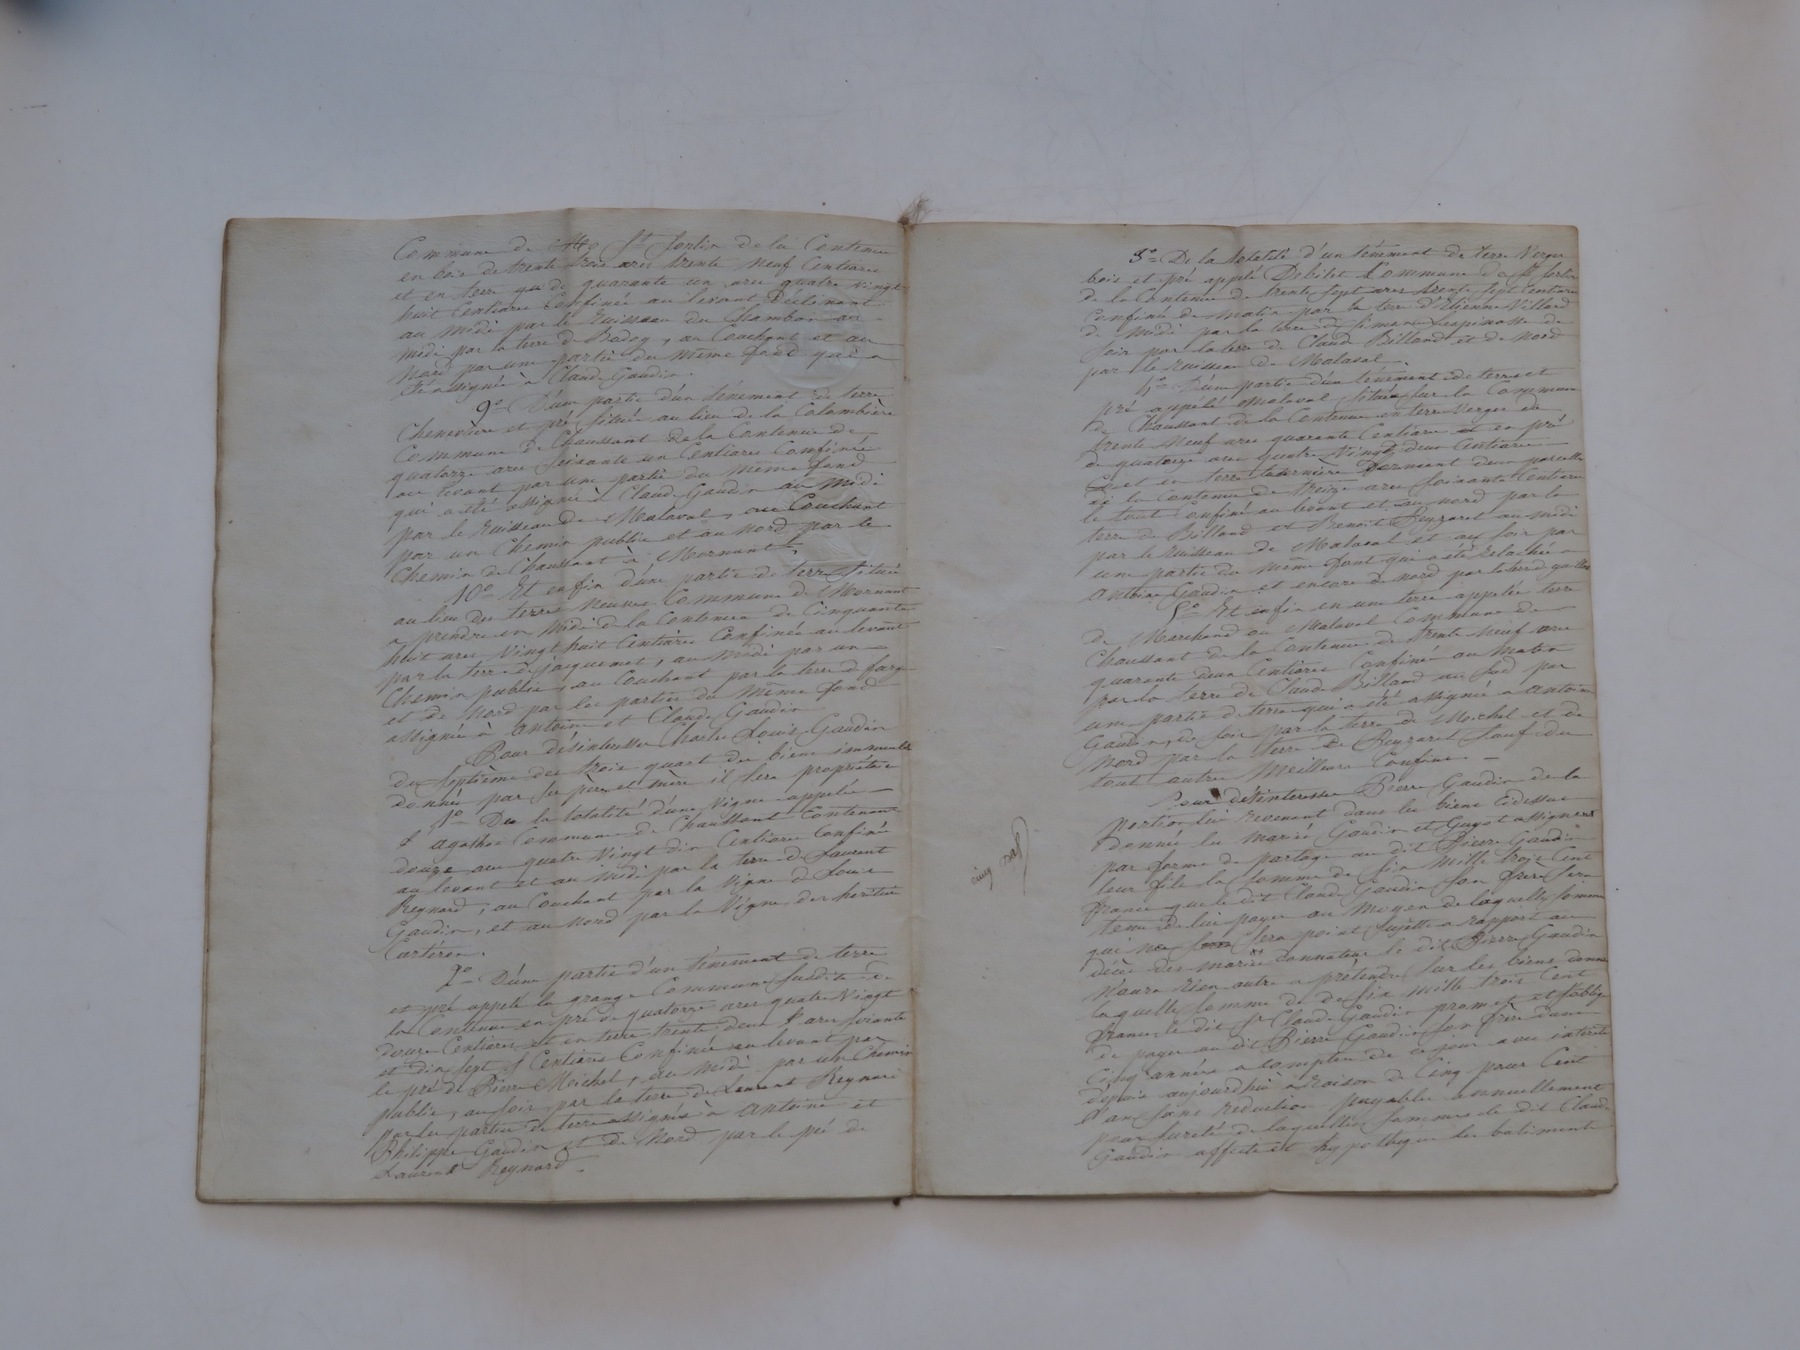 Commune de St Sorlin de la Contenue
en bois de trente trois ares trente neuf Centiares
et en terre que de quarante un ares quatre vingt
huit Centiares Confinée au levant déclinant
au midi par le ruisseau du Chambon au
midi par la terre de Badoy, au Couchant et au
Nord par une partie du même fond qui a
été assignée à Claude Gaudin.
9o D'une partie d'un tènement de terre
Chenevière et pré située au lieu de la Colombière
Commune de Chaussant de la Contenue de
quatorze ares soixante un Centiares Confinée
au levant par une partie du même fond
qui a été assignée à Claude Gaudin au Midi
par le Ruisseau de Malaval, au Couchant
par un Chemin public et au Nord par le
Chemin de Chaussant à Mornant.
10o Et enfin d'une partie de terre située
au lieu des terres Neuves Commune de Mornant
a prendre en Midi de la Contenue de Cinquante
huit ares Vingt huit Centiares Confinée au levant
par la terre de jacquemet, au Midi par un
Chemin public, au Couchant par la terre de farge
et de Nord par les partie du Même fond
assignée à antoine et Claude Gaudin
Pour désinteresser Charles Louis Gaudin
du Septième des trois quart des biens immeuble
donnés par ses père et mère il sera propriétaire
1o De la totalité d'une Vigne appelée
St agathe Commune de Chaussant Contenant
douze ares quatre Vingt dix Centiares Confinée
au levant et au Midi par la terre de Laurent
Reynard, au Couchant par la Vigne de Louis
Gaudin, et au Nord par la Vigne des heritiers
Cartéron.
2o D'une partie d'un tènement de terre
et pré appelé la grange Commune susdite de
la Contenue en pré de quatorze ares quatre Vingt
douze Centiares et en terre trente deux ares soixante
et dix sept Centiares Confinée au levant par
le pré de Pierre Meichel, au Midi par un Chemin
public, au soir par la terre de Laurent Reynard
par les parties de terre assignée à Antoine et
Philippe Gaudin et de Nord par le pré de
Laurent Reynard.
3o De la totalité d'un tènement de terre Verger
bois et pré appelé Debilet Commune de St Sorlin
de la Contenue de trente sept ares trente sept Centiares
Confinée de Matin par la terre d'Etienne Villard
de Midi par la terre de Simon Lespinasse de
soir par la terre de Claude Billand et de Nord
par le ruisseau de Malaval.
4o D'une partie d'un tènement de terre et
pré appelé Malaval, située sur la Commune
de Chaussant de la Contenue en terre Verger de
trente Neuf ares quarante Centiare et en pré
de quatorze ares quatre Vingt deux Centiares
Et en terre formant deux parcelles
de la Contenue de treize ares soixante Centiares
le tout Confiné au levant et au nord par la
terre de Billand et Benoit Peyzaret au midi
par le Ruisseau de Malaval et au soir par
une partie du même font qui a été relachée a
Antoine Gaudin et encore de nord par la terre
5o Et enfin en une terre appelée terre
de Marchand ou Malaval Commune de
Chaussant de la Contenue de trente neuf ares
quarante deux Centiares Confinée au Maten
par la terre de Claude Billand au Sud par
une partie de terre qui a été assignée a antoine
Gaudin, de soir par la terre de Meichel et de
Nord par la terre de Peyzaret sauf du
tout autres Meilleurs Confins.
Pour désinteresser Pierre Gaudin de la
portion lui revenant dans les biens cidessus
donnés les mariés Gaudin et Guyot assignent
par forme de partage au dit Pierre Gaudin
leur fils la somme de Six Mille trois Cent
francs que le dit Claude Gaudin son frère sera
tenu de lui payer au Moyen de laquelle somme
qui ne sera point sujette a rapport au
décès des mariés donnateurs le dit Pierre Gaudin
N'aura rien autre a prétendre sur les biens donnés
laquelle somme de de six mille trois Cent
francs le dit Sr Claude Gaudin promet et s'oblige
de payer au dit Pierre Gaudin son frère dans
Cinq années a compter de ce jour avec intérêts
depuis aujourd'hui a raison de Cinq pour Cent
l'an sans reduction payables annuellement
pour sureté de laquelle somme le dit Claude
Gaudin affecte et hypothèque les batiments